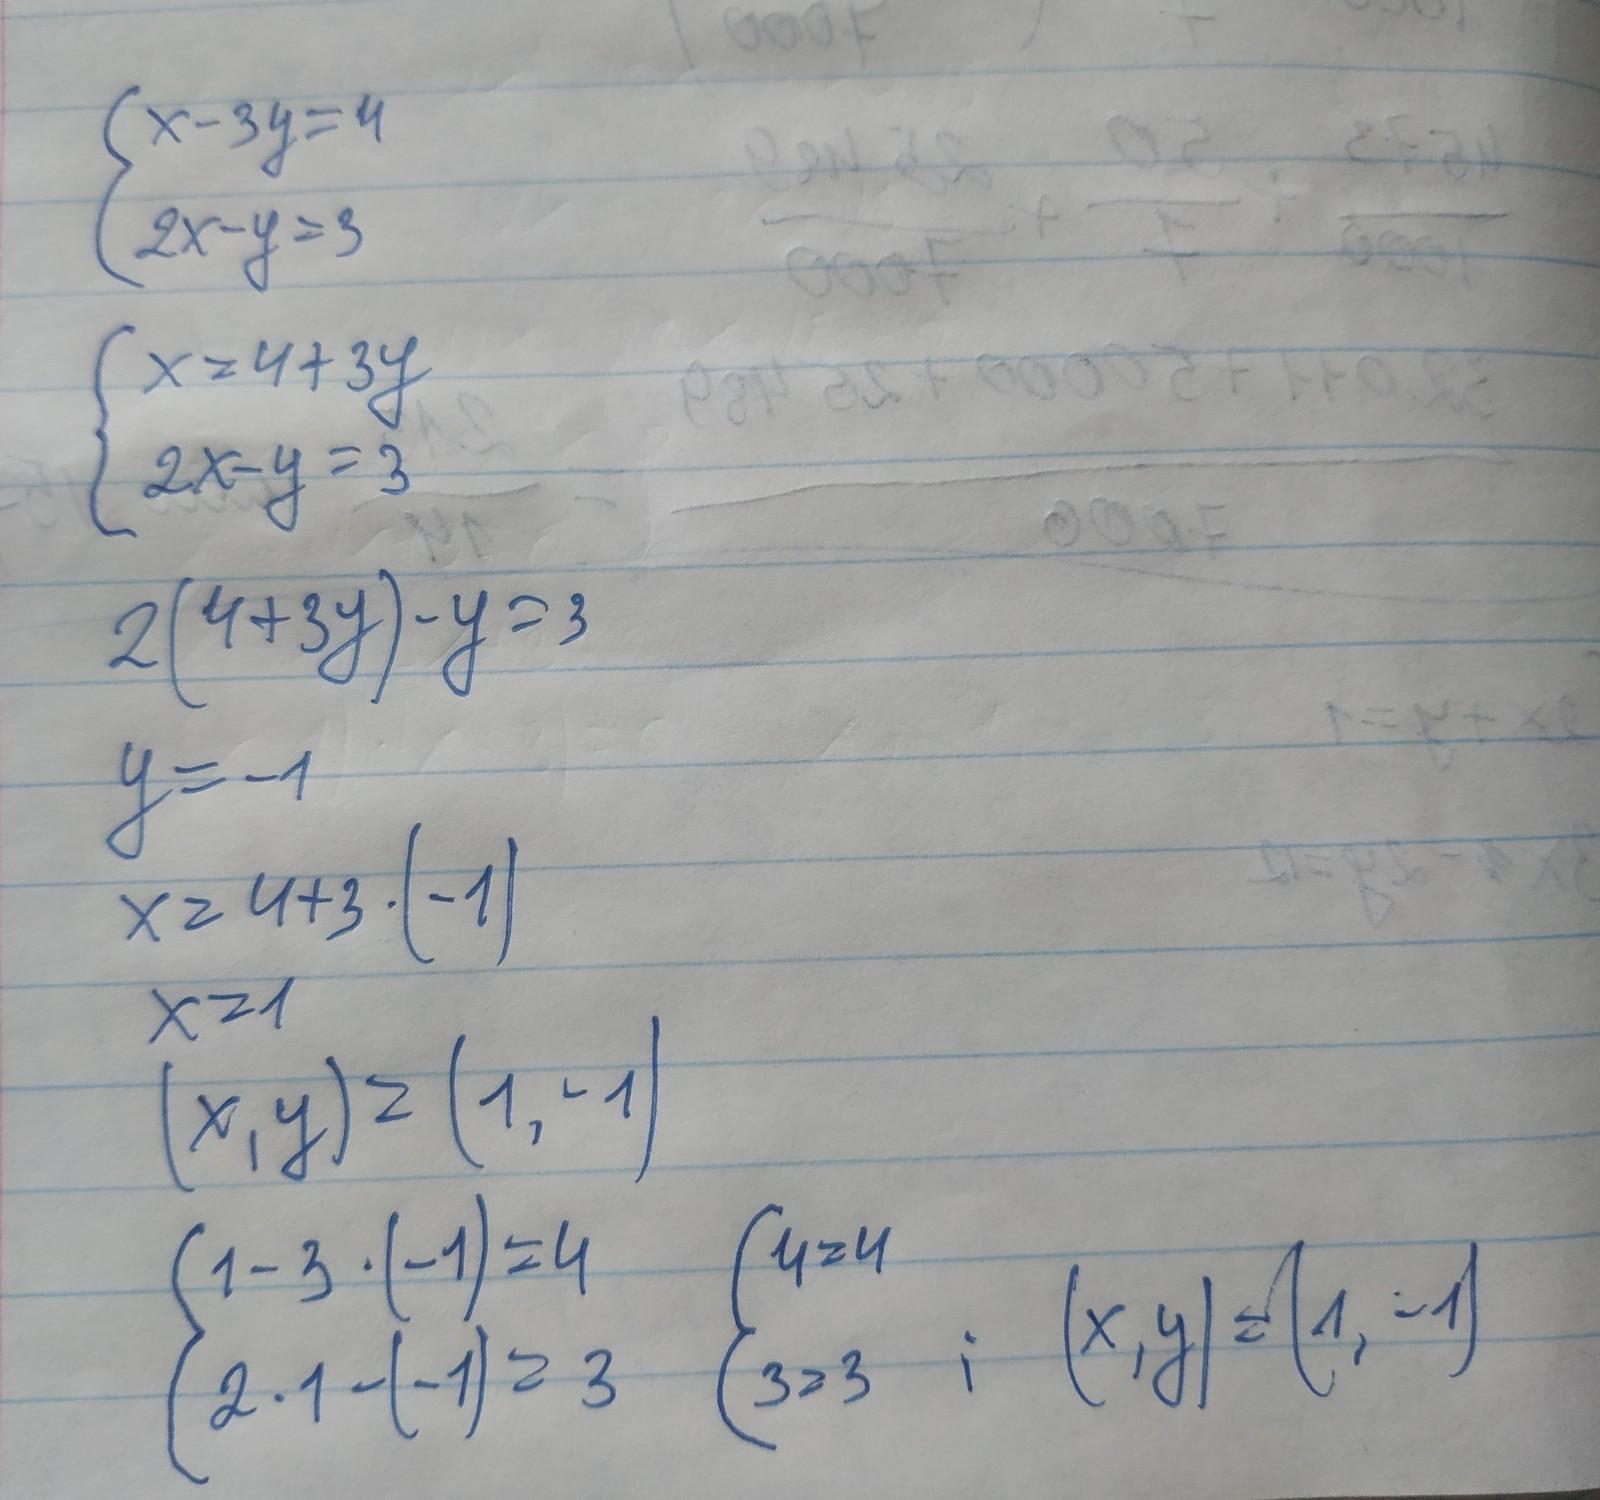 x-3y=4
2x-y=3
x=4+3y
2x-y=3
2(4+3y)-y=3
y=-1
x=4+3·(-1)
x=1
(x,y)=(1,-1)
1-3·(-1)=4 4=4
2·1-(-1)=3 3=3 ; (x,y)=(1,-1)